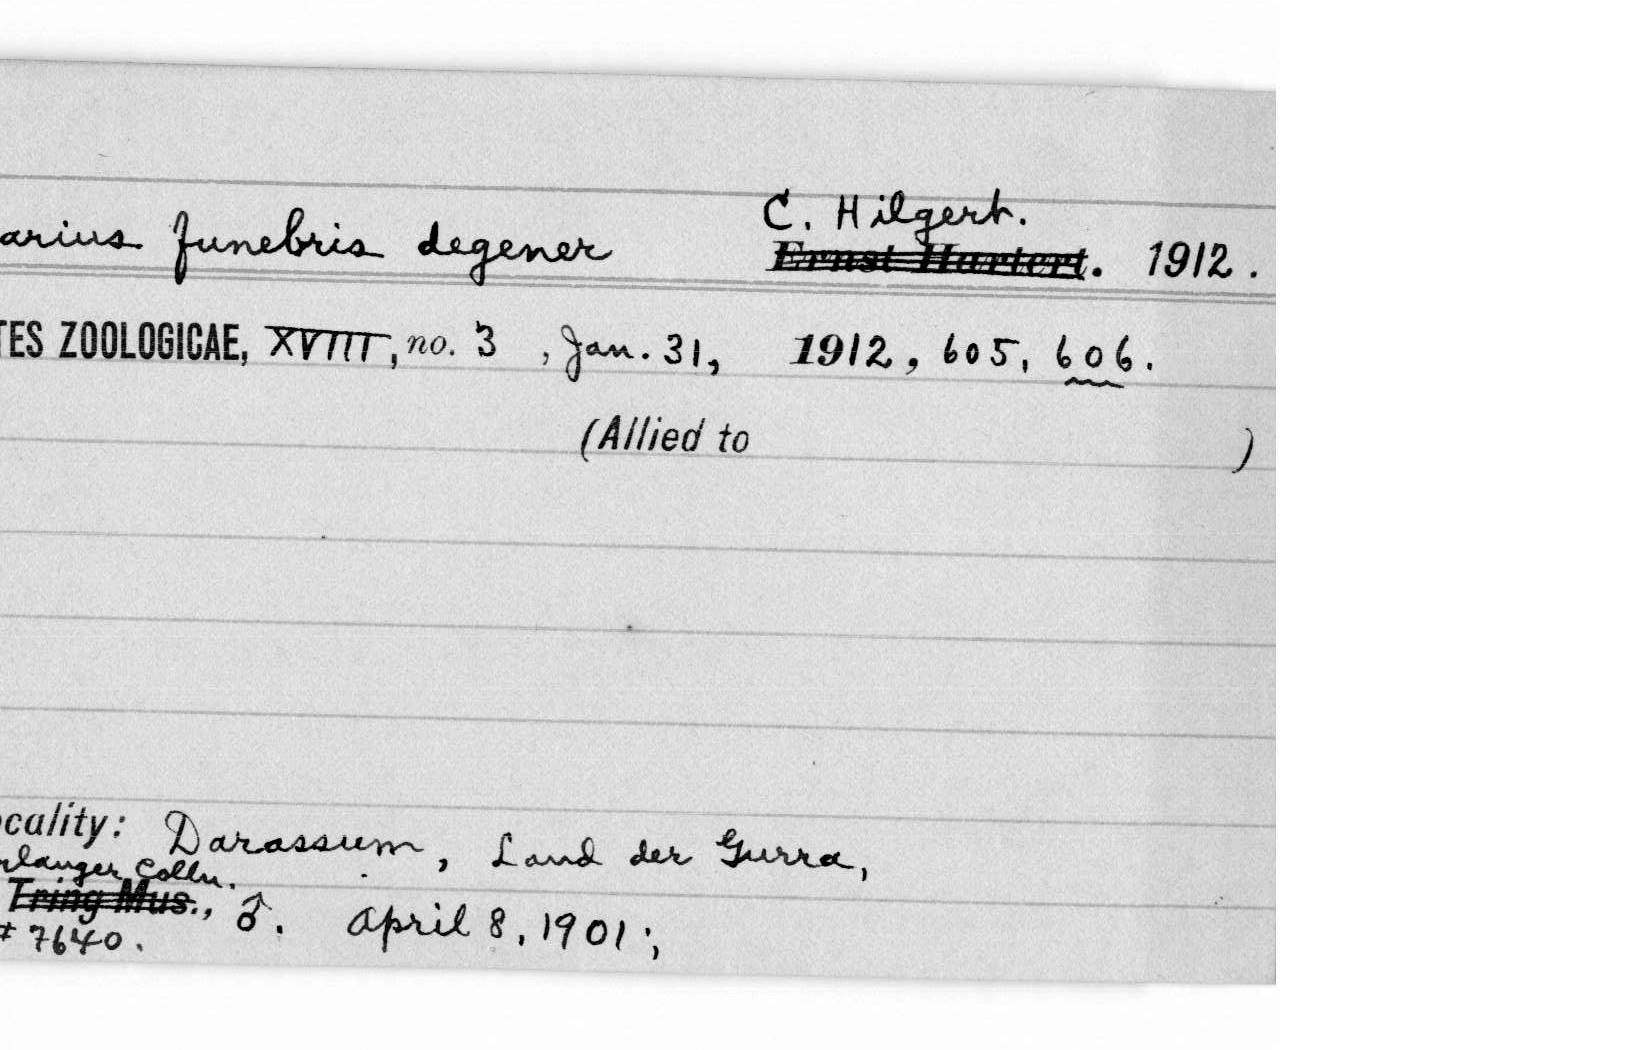 C. Hilgert.
arius funebris degener Ernst Hartert. 1912.
TES ZOOLOGICAE, XVIII, no. 3, Jan. 31, 1912, 605, 606.
(Allied to )
ocality: Darassum, Land der Gurra,
rlanger Colln.
Tring Mus., ♂. April 8, 1901;
# 7640.